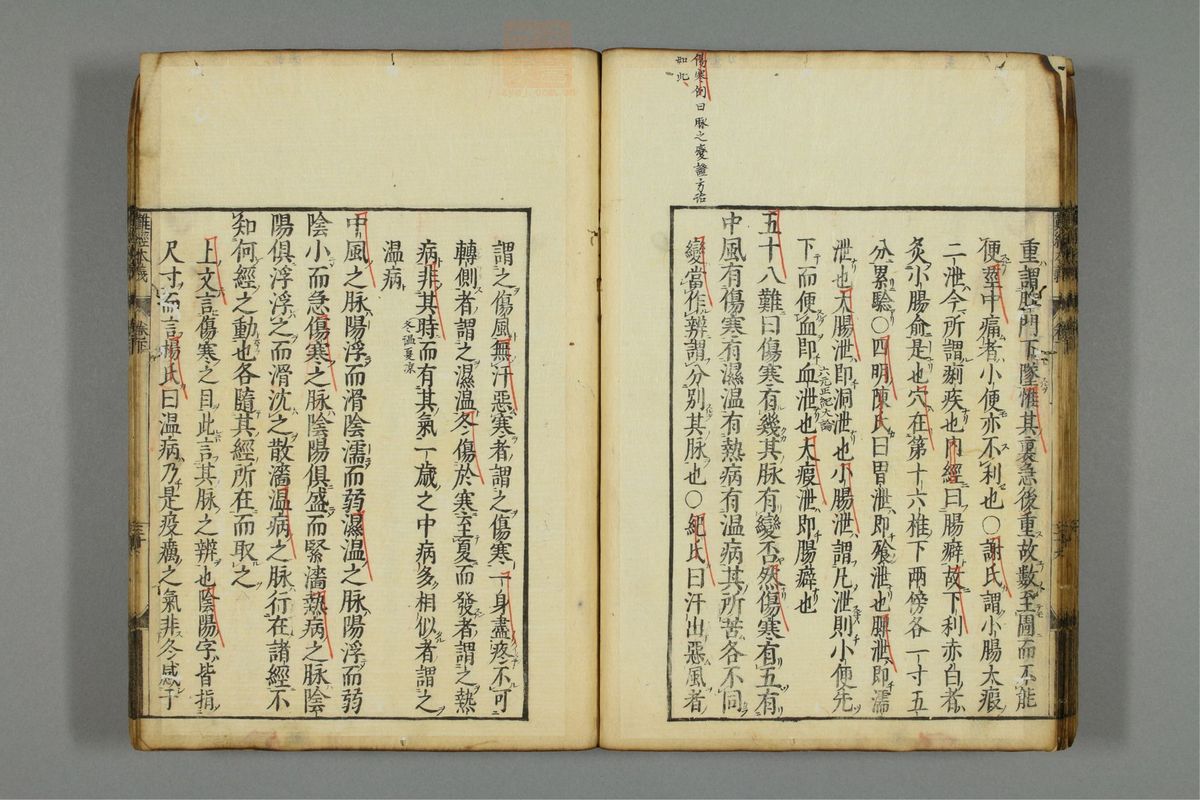 傷寒例曰脉之變證方治
如此
重謂肛門下墜惟其裏急後重故數至圊而不能
便莖中痛者小便亦不利也〇謝氏謂小腸大瘕
二泄今所謂痢疾也內經曰腸癖故下利赤白者
灸小腸俞是也穴在第十六椎下兩傍各一寸五
分累驗〇四明陳氏曰胃泄即飧泄也脾泄即濡
泄也大腸泄即洞泄也小腸泄謂凡泄則小便先
下而便血即血泄也大瘕泄即腸癖也
六元正紀大論
五十八難曰傷寒有幾其脉有變否然傷寒有五有
中風有傷寒有濕温有熱病有温病其所苦各不同
變當作辨謂分別其脉也〇紀氏曰汗出惡風者
謂之傷風無汗惡寒者謂之傷寒一身盡疼不可
轉側者謂之濕温冬傷於寒至夏而發者謂之熱
病非其時而有其氣一歲之中病多相似者謂之
冬温夏凉
温病
中風之脉陽浮而滑陰濡而弱濕温之脉陽浮而弱
陰小而急傷寒之脉陰陽俱盛而緊濇熱病之脉陰
陽俱浮浮之而滑沈之散濇温病之脉行在諸經不
知何經之動也各隨其經所在而取之
上文言傷寒之目此言其脉之辨也陰陽字皆指
尺寸而言楊氏曰温病乃是疫癘之氣非冬感于
難經本義
卷下